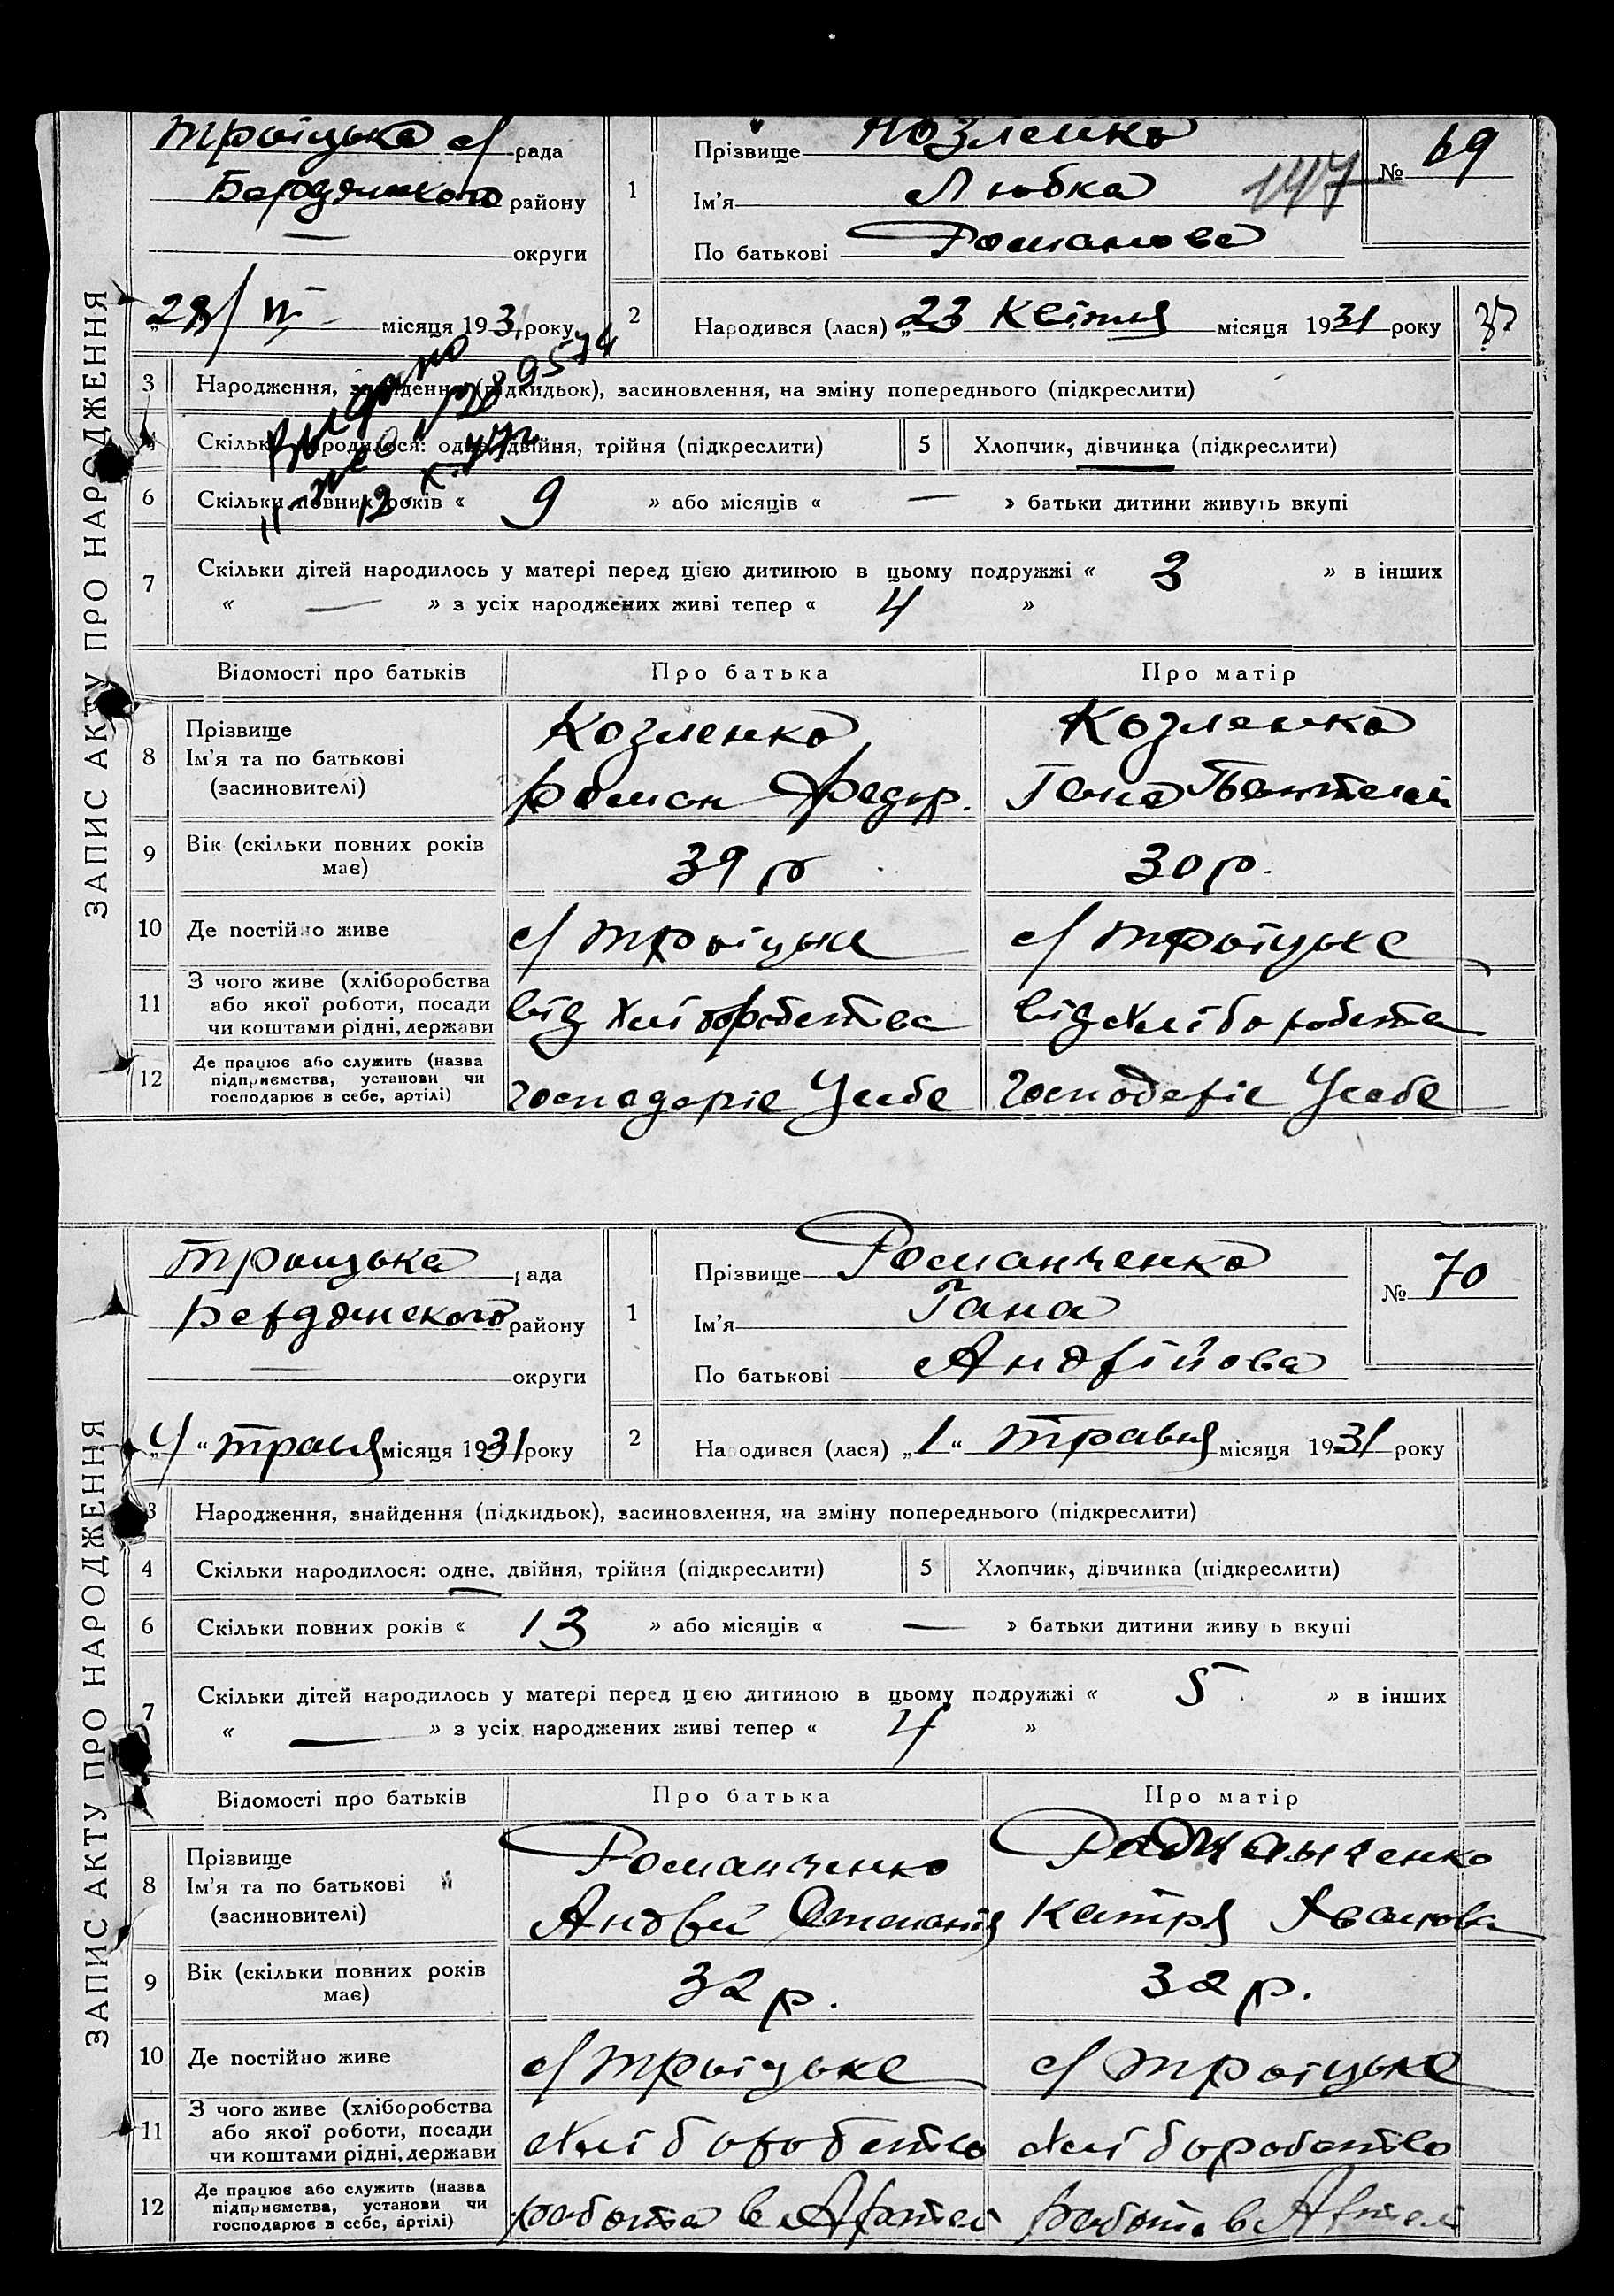 ЗАПИС АКТУ ПРО НАРОДЖЕННЯ
Троіцька с/ рада
Бердянського району
— округи
1
Прізвище Козленко
Ім'я Любка
По батькові Романова
147
№ 69
28/IV місяця 1931 року
2
Народився (лася) „23 Квітня місяця 1931 року
3 Народження, знайдення (підкидьок), засиновлення, на зміну попереднього (підкреслити)
4 Скільки народилося: одне, двійня, трійня (підкреслити) 5 Хлопчик, дівчинка (підкреслити)
6 Скільки повних років « 9 » або місяців « — » батьки дитини живуть вкупі
7 Скільки дітей народилось у матері перед цією дитиною в цьому подружжі « 3 » в інших
« — » з усіх народжених живі тепер « 4 »
Відомості про батьків Про батька Про матір
8 Прізвище
Ім'я та по батькові
(засиновителі)
Козленко
Роман Федір.
Козленко
Гана Пантелей
9 Вік (скільки повних років має) 39 р 30 р.
10 Де постійно живе с/ Троіцьке с/ Троіцьке
11 З чого живе (хліборобства
або якої роботи, посади
чи коштами рідні, держави
від хліборобства від хліборобства
12 Де працює або служить (назва
підприємства, установи чи
господарює в себе, артілі)
господаріє Усебе господаріє Усебе
ЗАПИС АКТУ ПРО НАРОДЖЕННЯ
Троицька рада
Бердянского району
— округи
1
Прізвище Романченко
Ім'я Гана
По батькові Андрійова
№ 70
„4“ траня місяця 1931 року
2
Народився (лася) „1“ травня місяця 1931 року
3 Народження, знайдення (підкидьок), засиновлення, на зміну попереднього (підкреслити)
4 Скільки народилося: одне, двійня, трійня (підкреслити) 5 Хлопчик, дівчинка (підкреслити)
6 Скільки повних років « 13 » або місяців « — » батьки дитини живуть вкупі
7 Скільки дітей народилось у матері перед цією дитиною в цьому подружжі « 5 » в інших
« — » з усіх народжених живі тепер « 4 »
Відомості про батьків Про батька Про матір
8 Прізвище
Ім'я та по батькові
(засиновителі)
Романченко
Андрій
Романченко
Катря Іванова
9 Вік (скільки повних років має) 32 р. 32 р.
10 Де постійно живе с/ Троіцьке с/ Троіцьке
11 З чого живе (хліборобства
або якої роботи, посади
чи коштами рідні, держави
Хліборобство Хліборобство
12 Де працює або служить (назва
підприємства, установи чи
господарює в себе, артілі)
робота в Артелі робота в Артелі